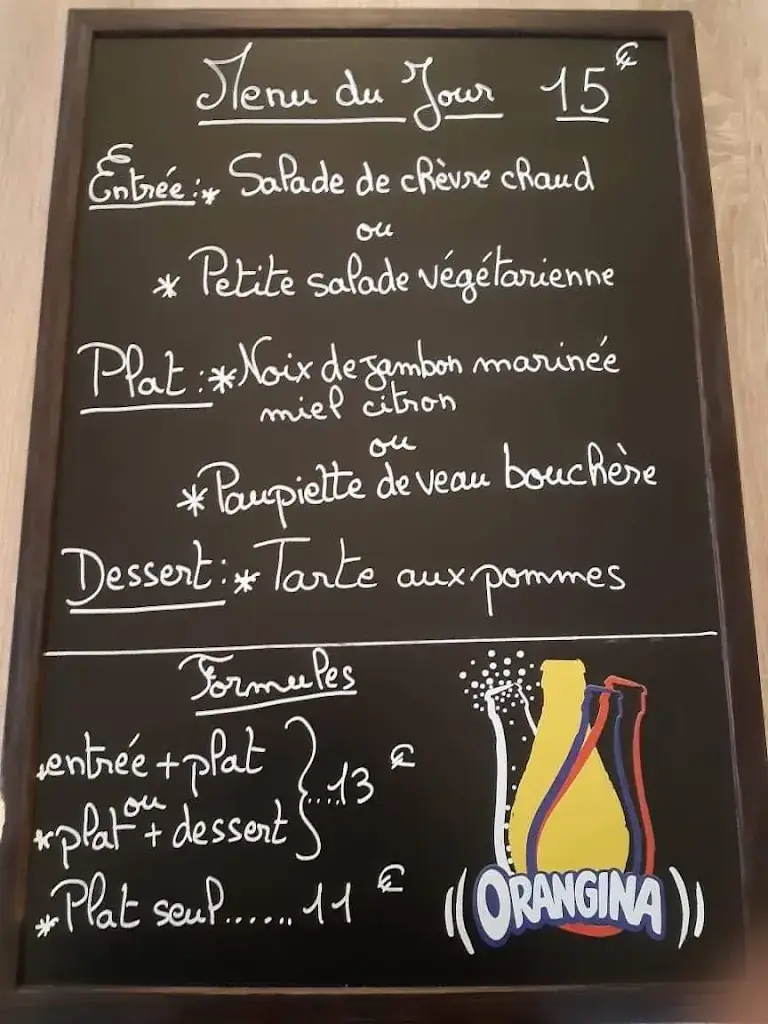 Menu du Jour 15€
Entrée : * Salade de chèvre chaud
ou
* Petite salade végétarienne
Plat : * Noix de jambon marinée
miel citron
ou
* Paupiette de veau bouchère
Dessert : * Tarte aux pommes
Formules
* entrée + plat
ou
* plat + dessert } .... 13 €
* Plat seul ...... 11 €
ORANGINA